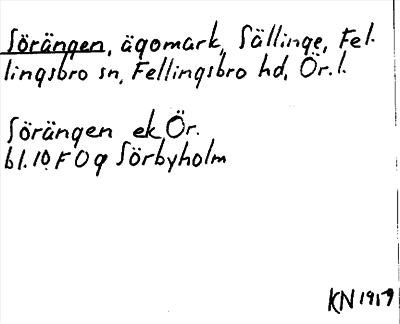 Sörängen, ägomark, Sällinge, Fel-
lingsbro sn, Fellingsbro hd, Ör. l.
Sörängen ek Ör.
bl. 10 F O g Sörbyholm
KN 1917